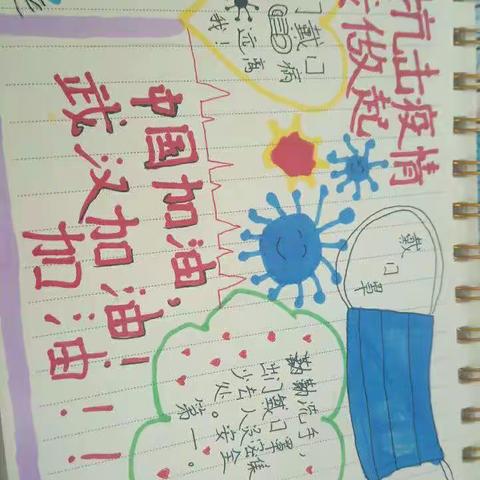 抗击疫情
从我做起
门戴口
病
远离
我！
中国加油，
武汉加油！
加油！！
戴口罩
勤勤洗手，
出门戴口罩，
少去人
安全
第一。